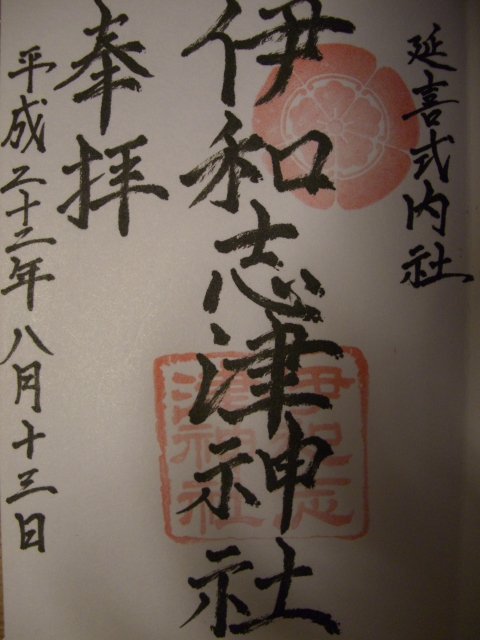 延喜式内社
伊和志津神社
奉拝
平成二十二年八月十三日
伊和志
津神社